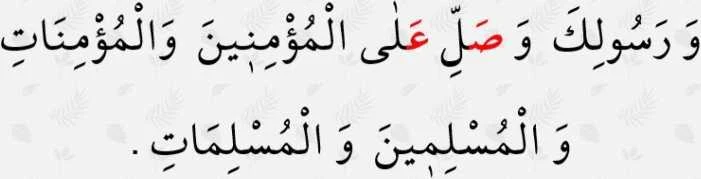 وَ رَسُولِكَ وَ صَلِّ عَلٰى الْمُؤْمِنٖينَ وَالْمُؤْمِنَاتِ
وَ الْمُسْلِمٖينَ وَ الْمُسْلِمَاتِ .